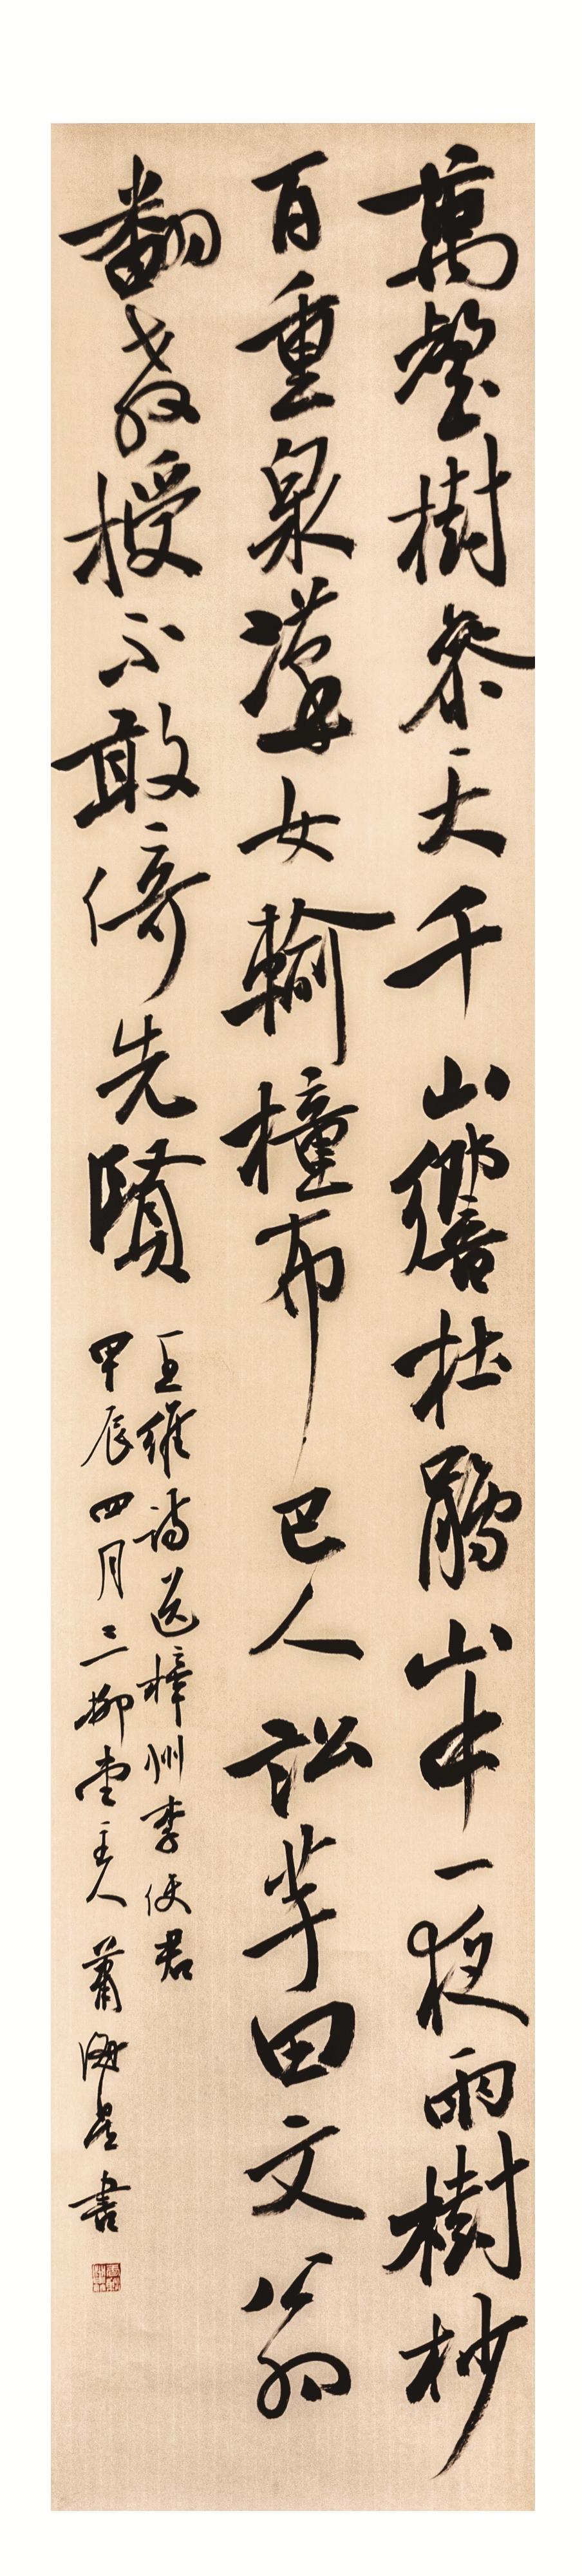 萬壑樹參天千山響杜鵑山中一夜雨樹杪
百重泉漢女輸橦布巴人訟芋田文翁
翻教授不敢倚先賢
王維詩送梓州李使君
甲辰四月三柳堂主人蕭海春書